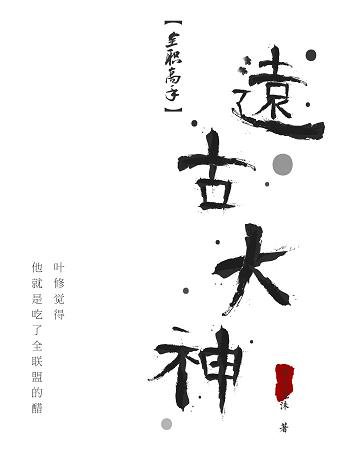 遠古大神
著
【全职高手】
叶修觉得
他就是吃了全联盟的醋